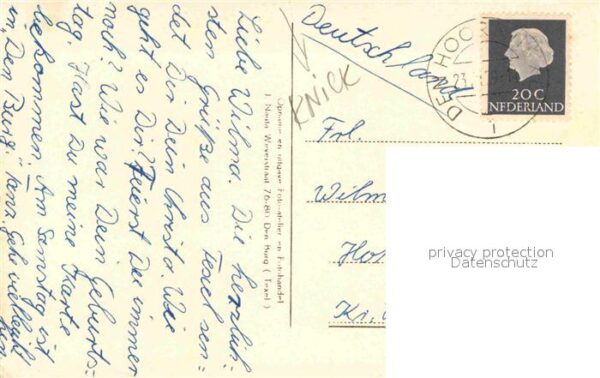 Liebe Wilma. Die herzlich=
sten Grüße aus Texel sen=
det Dir Dein Christa. Wie
geht es Dir? Feierst Du immer
noch? Wie war Dein Geburts=
tag. Hast Du meine Karte
bekommen. Am Samstag ist
in "Den Burg" Tanz. Gehe vielleicht
hin.
Opname en uitgave Foto-atelier en Fotohandel
J. Nauta Waverstraat 76-80 Den Burg ( Texel )
KNICK
Deutschland
DEN HOORN
23
20 C
NEDERLAND
Frl.
Wilm
Ho
Kr.
privacy protection
Datenschutz